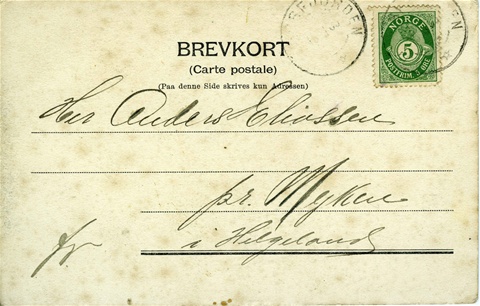 BREVKORT
(Carte postale)
(Paa denne Side skrives kun Adressen)
NORGE
5
POSTFRIM. 5 ØRE
Herr Anders Eliassen
pr. Myken
i Helgeland